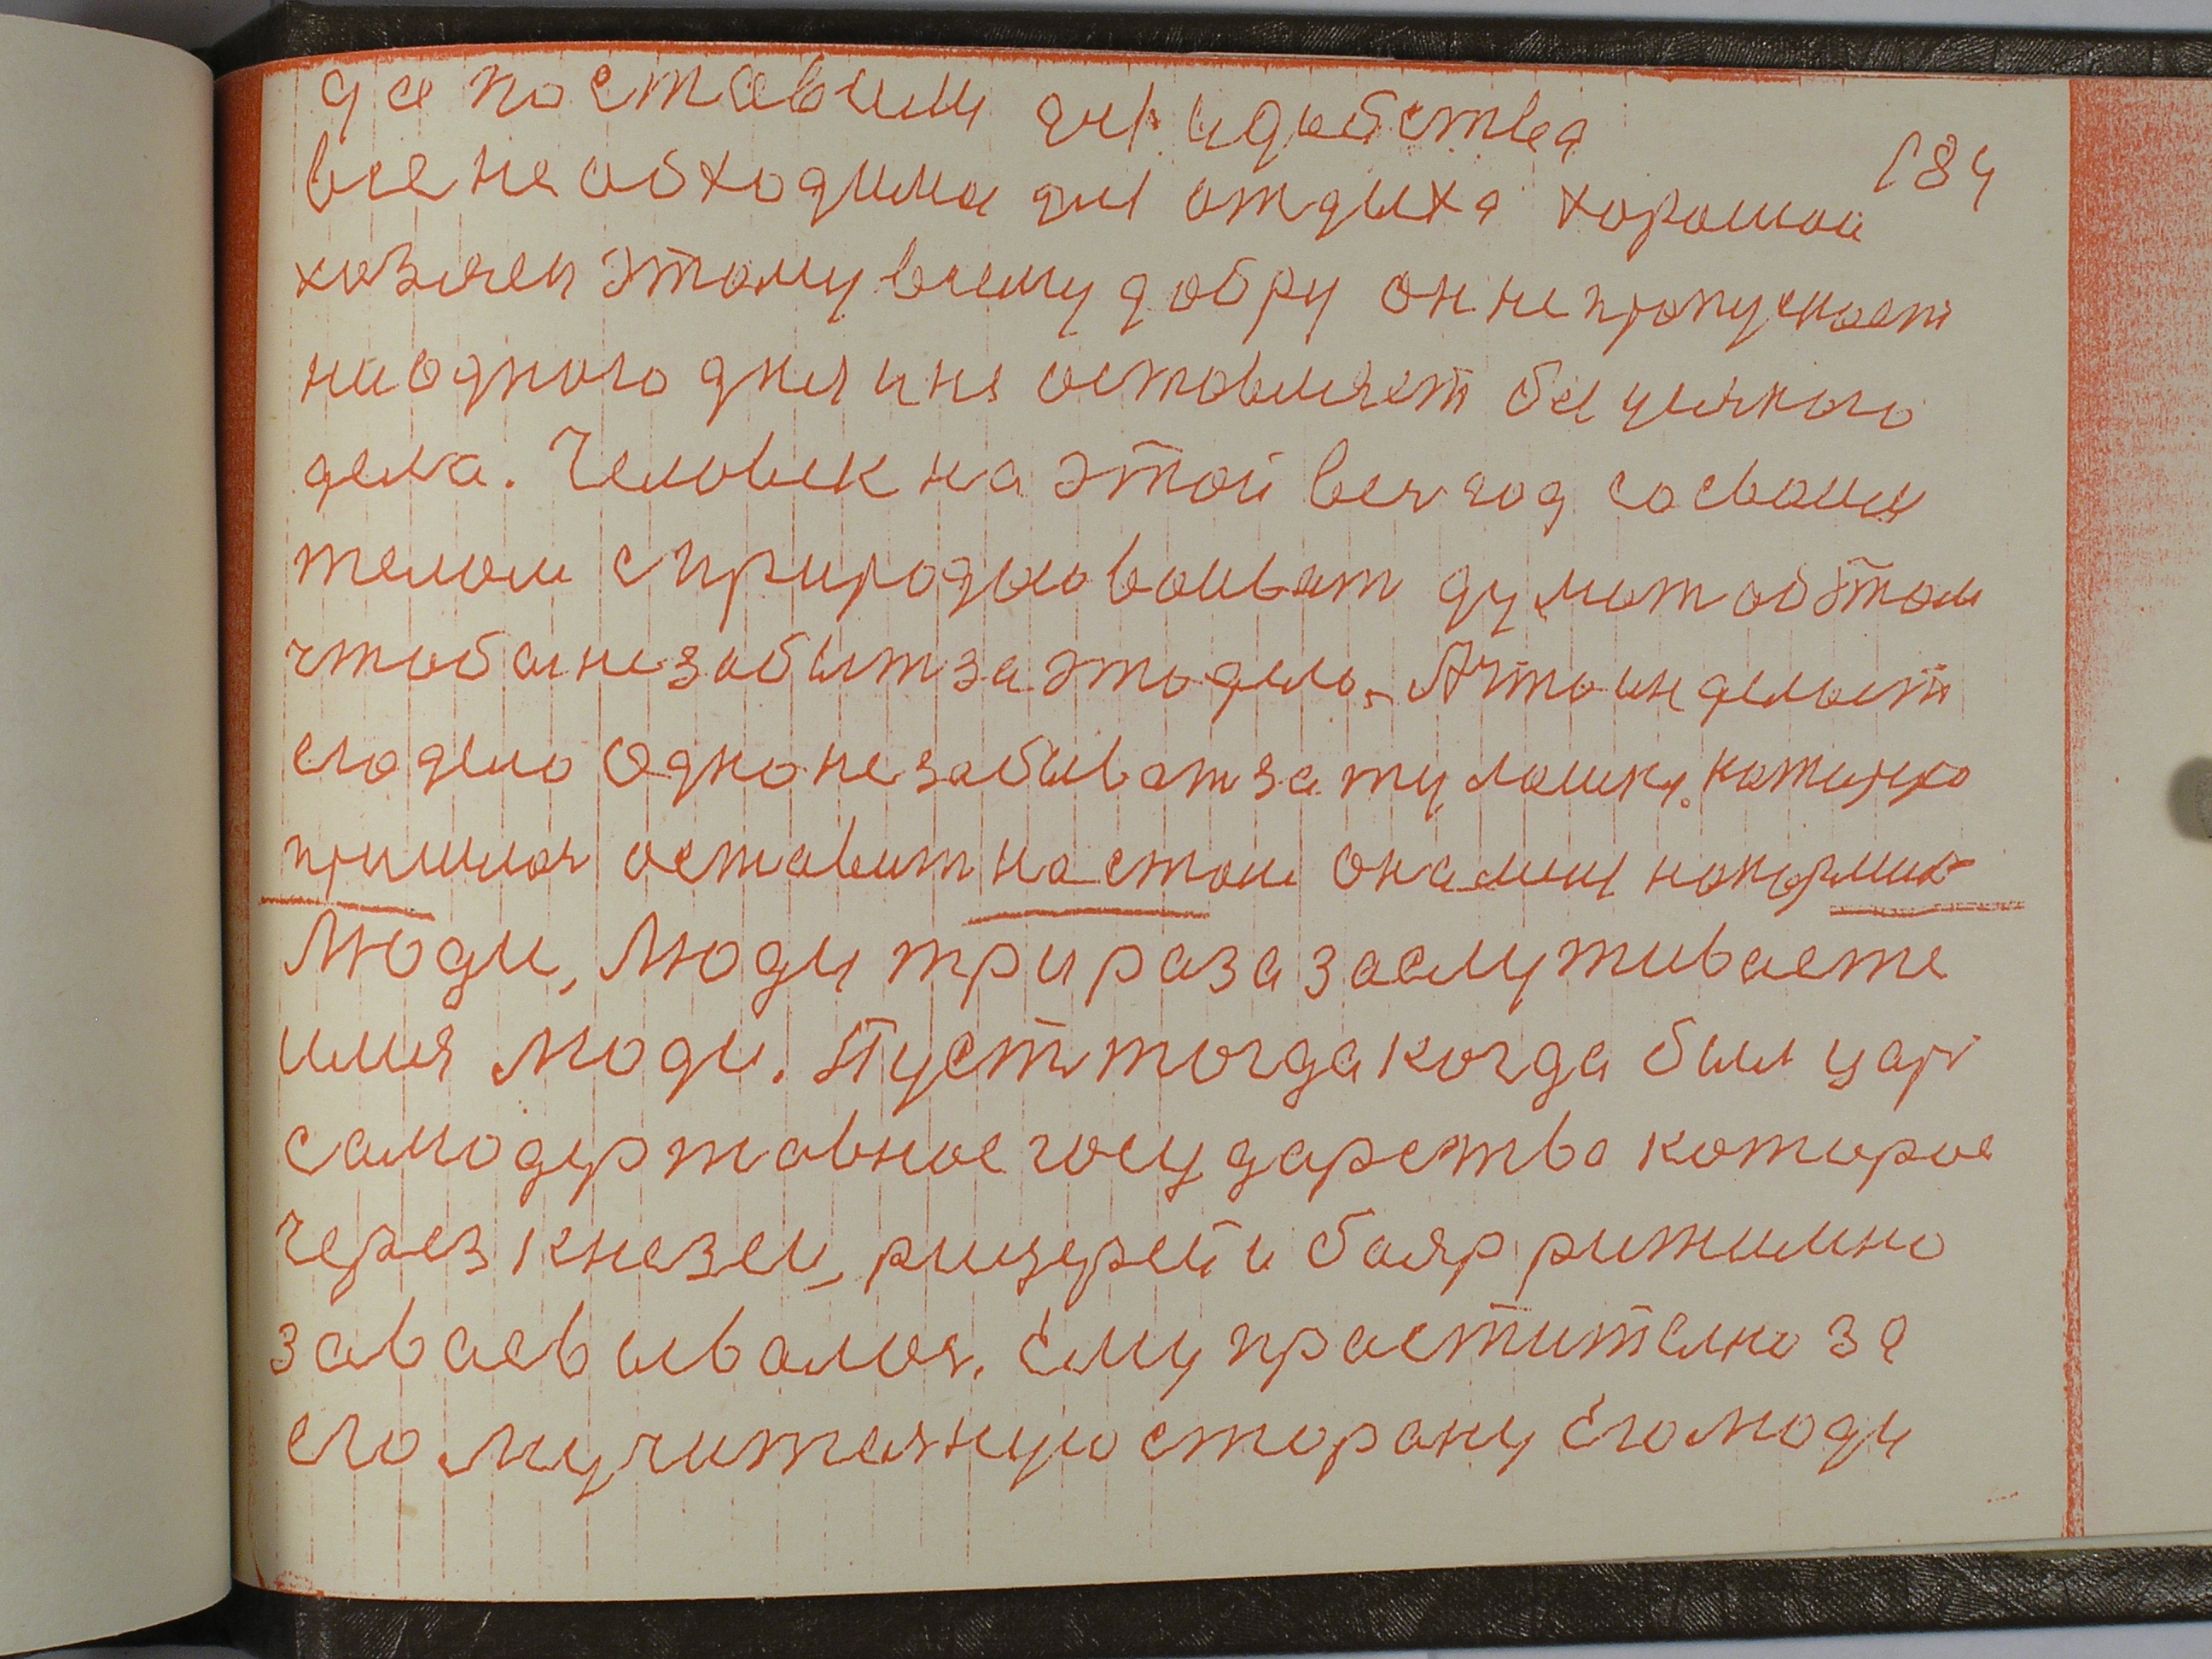 да поставили для удобства
184
все необходима для отдыха хорошои
хозяен этому всему добру он не пропускает
на одного дня и не оставляет без умного
дела. Человек на этой весь год со своим
телом с природыю воиват думат об этом
чтобы не забыт за это дело. А что ин делает
его дело Одно не забыват за ту лошку, которую
пришлос оставит на стом она мии накормила
Люди, Люди три раза заслуживаете
имя люди. Пуст тогда когда был цар
самодержавное государства которое
через князеи, рицерей и бояр рижимно
заваевывалося. Ему прастително за
его мучитаяную сторану Его люди